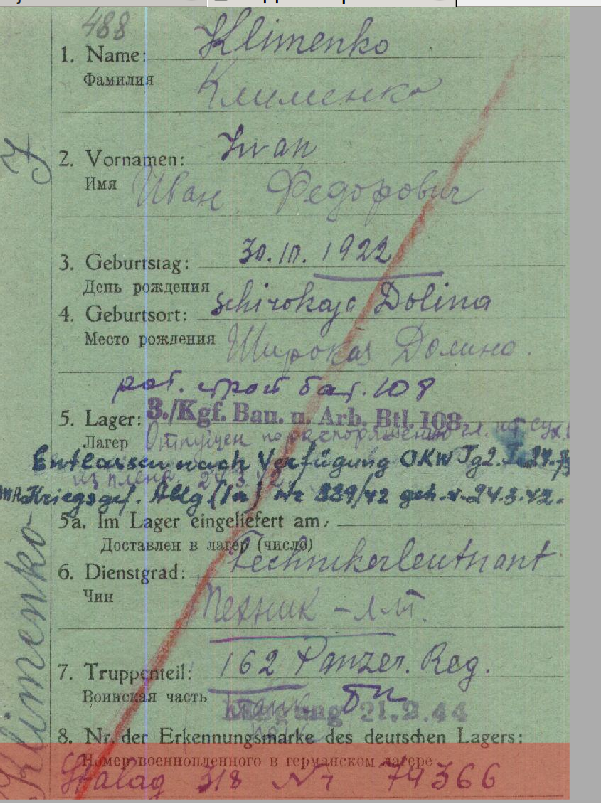 488
1. Name: Klimenko
Фамилия Клименко
2. Vornamen: Iwan
Имя Иван Федорович
3. Geburtstag: 30.10.1922
День рождения
4. Geburtsort: Schirokaja Dolina
Место рождения Широкая Долина.
раб. строй бат. 108
5. Lager: 3./Kgf. Bau. u. Arb. Btl. 108
Лагерь Отпущен по распоряжению
Entlassen nach Verfügung OKW
из плена 24.3.
Kriegsgef. Abtg (Ia) Nr 339/42 geh. v. 24.3.42.
5a. Im Lager eingeliefert am:
Доставлен в лагерь (число)
6. Dienstgrad: Technikerleutnant
Чин Техник-л-т.
7. Truppenteil: 162 Panzer. Reg.
Воинская часть
21.9.44
8. Nr. der Erkennungsmarke des deutschen Lagers:
Номер военнопленного в германском лагере
Stalag 318 Nr 74366
Klimenko J